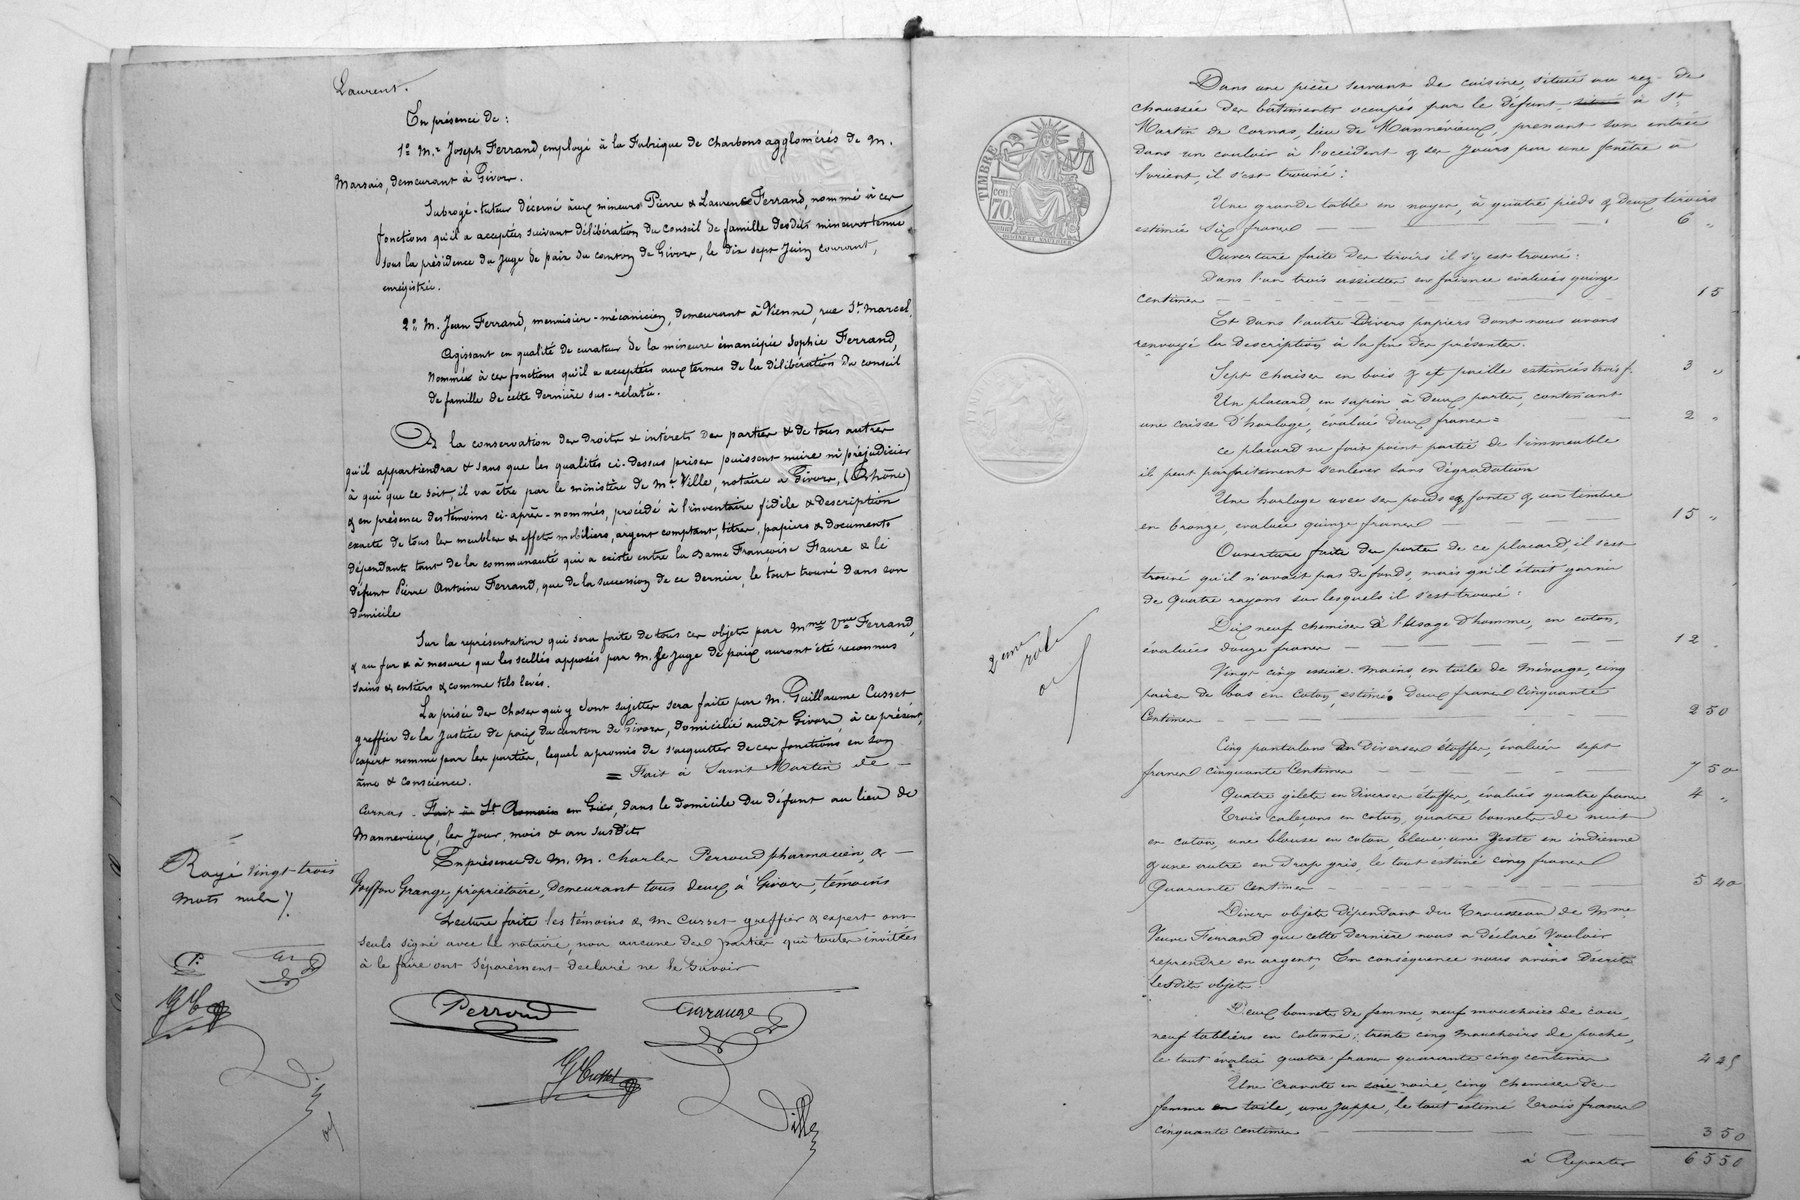 Laurent.
En présence de :
1º M.r Joseph Ferrand, employé à la Fabrique de charbons agglomérés de M.
Marsais, demeurant à Givors.
Subrogé-tuteur décerné aux mineurs Pierre & Laurence Ferrand, nommé à ces
fonctions qu'il a acceptées suivant délibération du Conseil de famille desdits mineurs tenue
sous la présidence du Juge de paix du canton de Givors, le dix sept Juin courant,
enregistrée.
2º M. Jean Ferrand, menuisier-mécanicien, demeurant à Vienne, rue St. Marcel,
Agissant en qualité de curateur de la mineure émancipée Sophie Ferrand,
Nommé à ces fonctions qu'il a acceptées aux termes de la délibération du conseil
de famille de cette dernière sus-relatée.
A la conservation des droits & intérêts des parties & de tous autres
qu'il appartiendra & sans que les qualités ci-dessus prises puissent nuire ni préjudicier
à qui que ce soit, il va être par le ministère de Me Ville, notaire à Givors, (Rhône)
& en présence des témoins ci-après-nommés, procédé à l'inventaire fidèle & description
exacte de tous les meubles & effets mobiliers, argent comptant, titres, papiers & documents
dépendant tant de la communauté qui a existé entre la dame Françoise Faure & le
défunt Pierre Antoine Ferrand, que de la succession de ce dernier, le tout trouvé dans son
domicile
Sur la représentation qui sera faite de tous ces objets par Mme Vve Ferrand,
& au fur & à mesure que les scellés apposés par M. le Juge de paix auront été reconnus
sains & entiers & comme tels levés.
La prisée des choses qui y sont sujettes sera faite par M. Guillaume Cusset
greffier de la Justice de paix du canton de Givors, domicilié audit Givors, à ce présent,
expert nommé par les parties, lequel a promis de s'acquitter de ces fonctions en son
âme & conscience. = Fait à Saint Martin de –
Cornas. Fait à St Romain en Gier, dans le domicile du défunt au lieu de
Mannevieux, les jour, mois & an susdits
En présence de M. M. Charles Perroud pharmacien, & –
Goiffon Grange, propriétaire, demeurant tous deux à Givors, témoins
Lecture faite les témoins & M. Cusset greffier & expert ont
seuls signé avec le notaire, non aucune des parties qui toutes invitées
à le faire ont séparément déclaré ne le savoir
Rayé vingt-trois
mots nuls /.
P.
Perroud
Grange
G Cusset
Ville
TIMBRE
cen
70
2eme
role
Dans une pièce servant de cuisine, située au rez-de
chaussée des bâtiments occupés par le défunt, situé à St.
Martin de Cornas, lieu de Mannévieux, prenant son entrée
dans un couloir à l'occident & ses jours par une fenêtre à
l'orient, il s'est trouvé :
Une grande table en noyer, à quatre pieds & deux tiroirs
estimée six francs — 6 "
Ouverture faite des tiroirs il s'y est trouvé :
Dans l'un trois assiettes en faïence évaluées quinze
centimes — 15
Et dans l'autre divers papiers dont nous avons
renvoyé la description à la fin des présentes.
Sept chaises en bois & paille estimées trois f. 3 "
Un placard en sapin à deux portes, contenant
une caisse d'horloge, évalué deux francs = 2 "
ce placard ne fait point partie de l'immeuble
il peut parfaitement s'enlever sans dégradation
Une horloge avec ses poids en fonte & un timbre
en bronze, évaluée quinze francs — 15 "
Ouverture faite des portes de ce placard, il s'est
trouvé qu'il n'avait pas de fonds, mais qu'il était garni
de quatre rayons sur lesquels il s'est trouvé :
Dix neuf chemises à l'usage d'homme, en coton,
évaluées douze francs — 12
Vingt cinq essuie-mains en toile de ménage, cinq
paires de bas en coton, estimés deux francs cinquante
Centimes — 2 50
Cinq pantalons en diverses étoffes, évalués sept
francs cinquante Centimes — 7 50
Quatre gilets en diverses étoffes, évalués quatre francs 4 "
Trois caleçons en coton, quatre bonnets de nuit
en coton, une blouse en coton, bleue, une veste en indienne
& une autre en drap gris, le tout estimé cinq francs
Quarante Centimes — 5 40
Divers objets dépendant du trousseau de Mme
Veuve Ferrand que cette dernière nous a déclaré vouloir
reprendre en argent, En conséquence nous avons décrit
lesdits objets.
Deux bonnets de femme, neuf mouchoirs de cou,
neuf tabliers en cotonne, trente cinq mouchoirs de poche,
le tout évalué quatre francs quarante cinq centimes 4 45
Une cravate en soie noire, cinq chemises de
femme en toile, une juppe, le tout estimé trois francs
cinquante centimes — 3 50
à Reporter 65 50